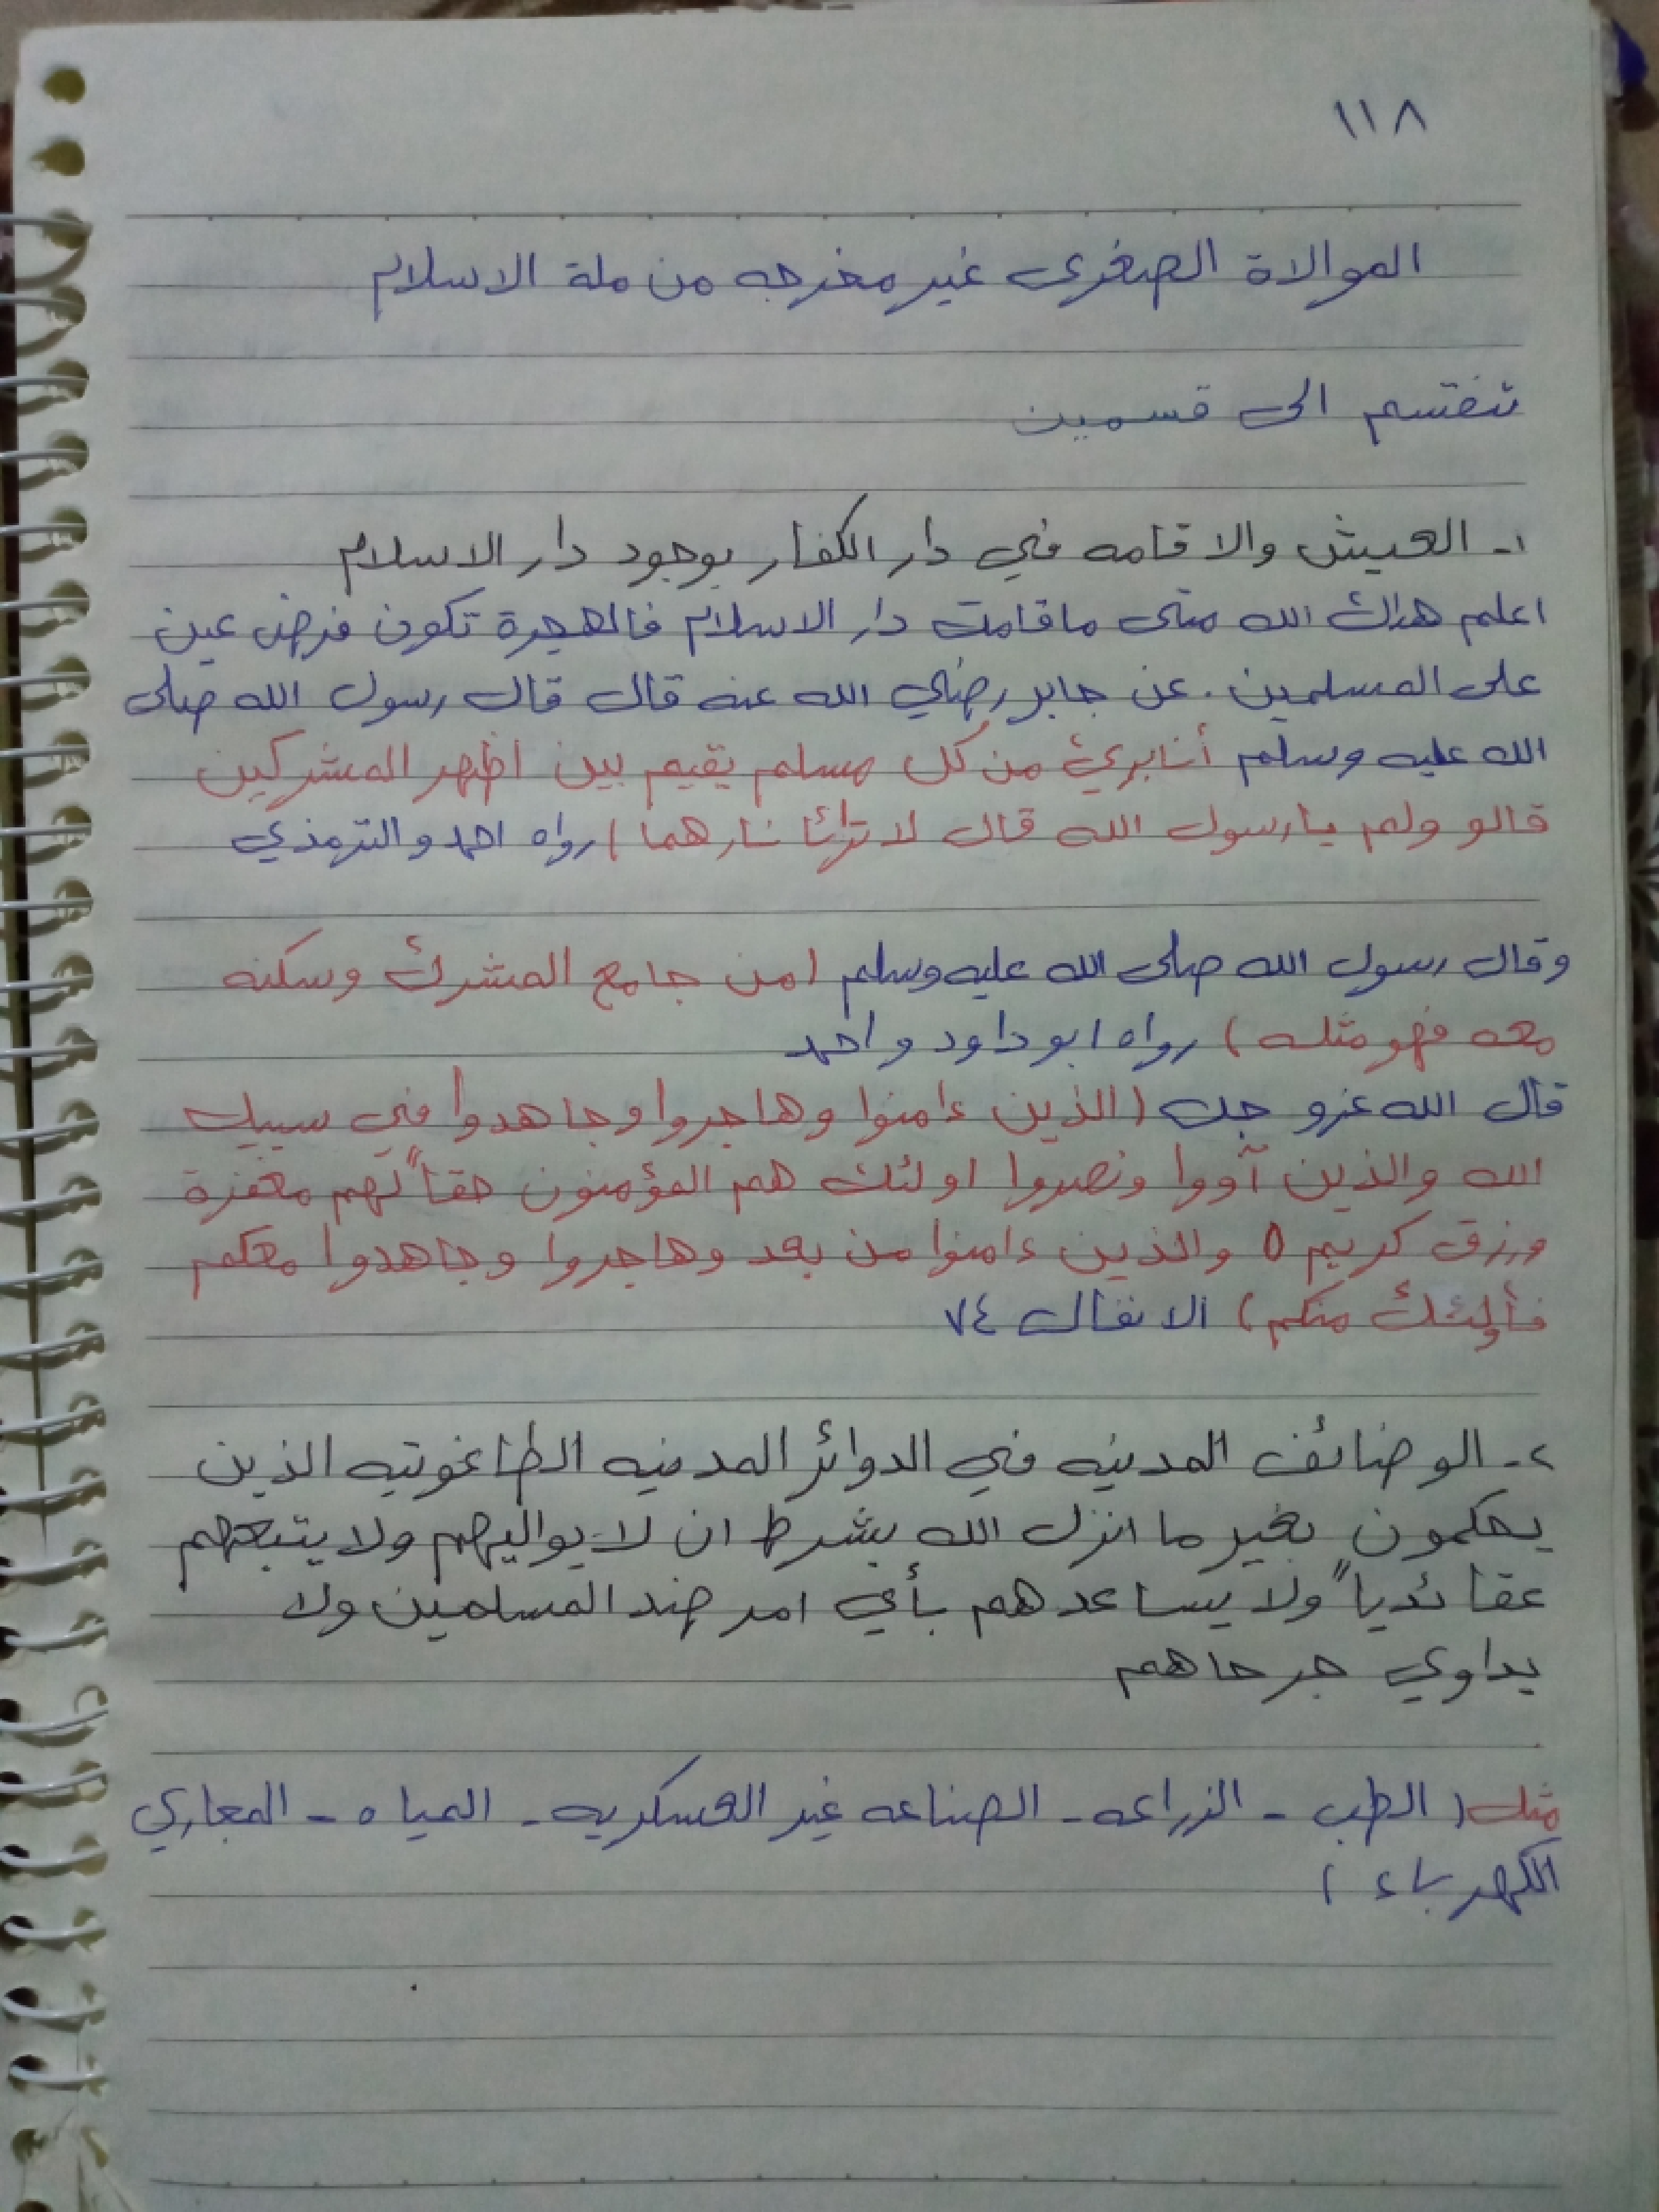 ١١٨
الموالاة الصغرى غير مخرجه من ملة الاسلام
تنقسم الى قسمين
١- العيش والاقامه في دار الكفار بوجود دار الاسلام
اعلم هداك الله متى ماقامت دار الاسلام فالهجرة تكون فرض عين
على المسلمين. عن جابر رضي الله عنه قال قال رسول الله صلى
الله عليه وسلم أنا بريئ من كل مسلم يقيم بين اظهر المشركين
قالو ولم يا رسول الله قال لا ترائا نارهما) رواه احمد والترمذي
وقال رسول الله صلى الله عليه وسلم (من جامع المشرك وسكنه
معه فهو مثله) رواه ابو داود واحمد
قال الله عزو جل (الذين ءامنوا وهاجروا وجاهدوا في سبيل
الله والذين آووا ونصروا اولئك هم المؤمنون حقاً لهم مغفرة
ورزق كريم ٥ والذين ءامنوا من بعد وهاجروا وجاهدوا معكم
فأولئك منكم) الانفال ٧٤
٢- الوضائف المدنيه في الدوائر المدنيه الطاغوتيه الذين
يحكمون بغير ما انزل الله بشرط ان لا يواليهم ولا يتبعهم
عقائدياً ولا يساعدهم بأي امر ضد المسلمين ولا
يداوي جرحاهم
مثل (الطب - الزراعه - الصناعه غير العسكريه - المياه - المجاري
الكهرباء)